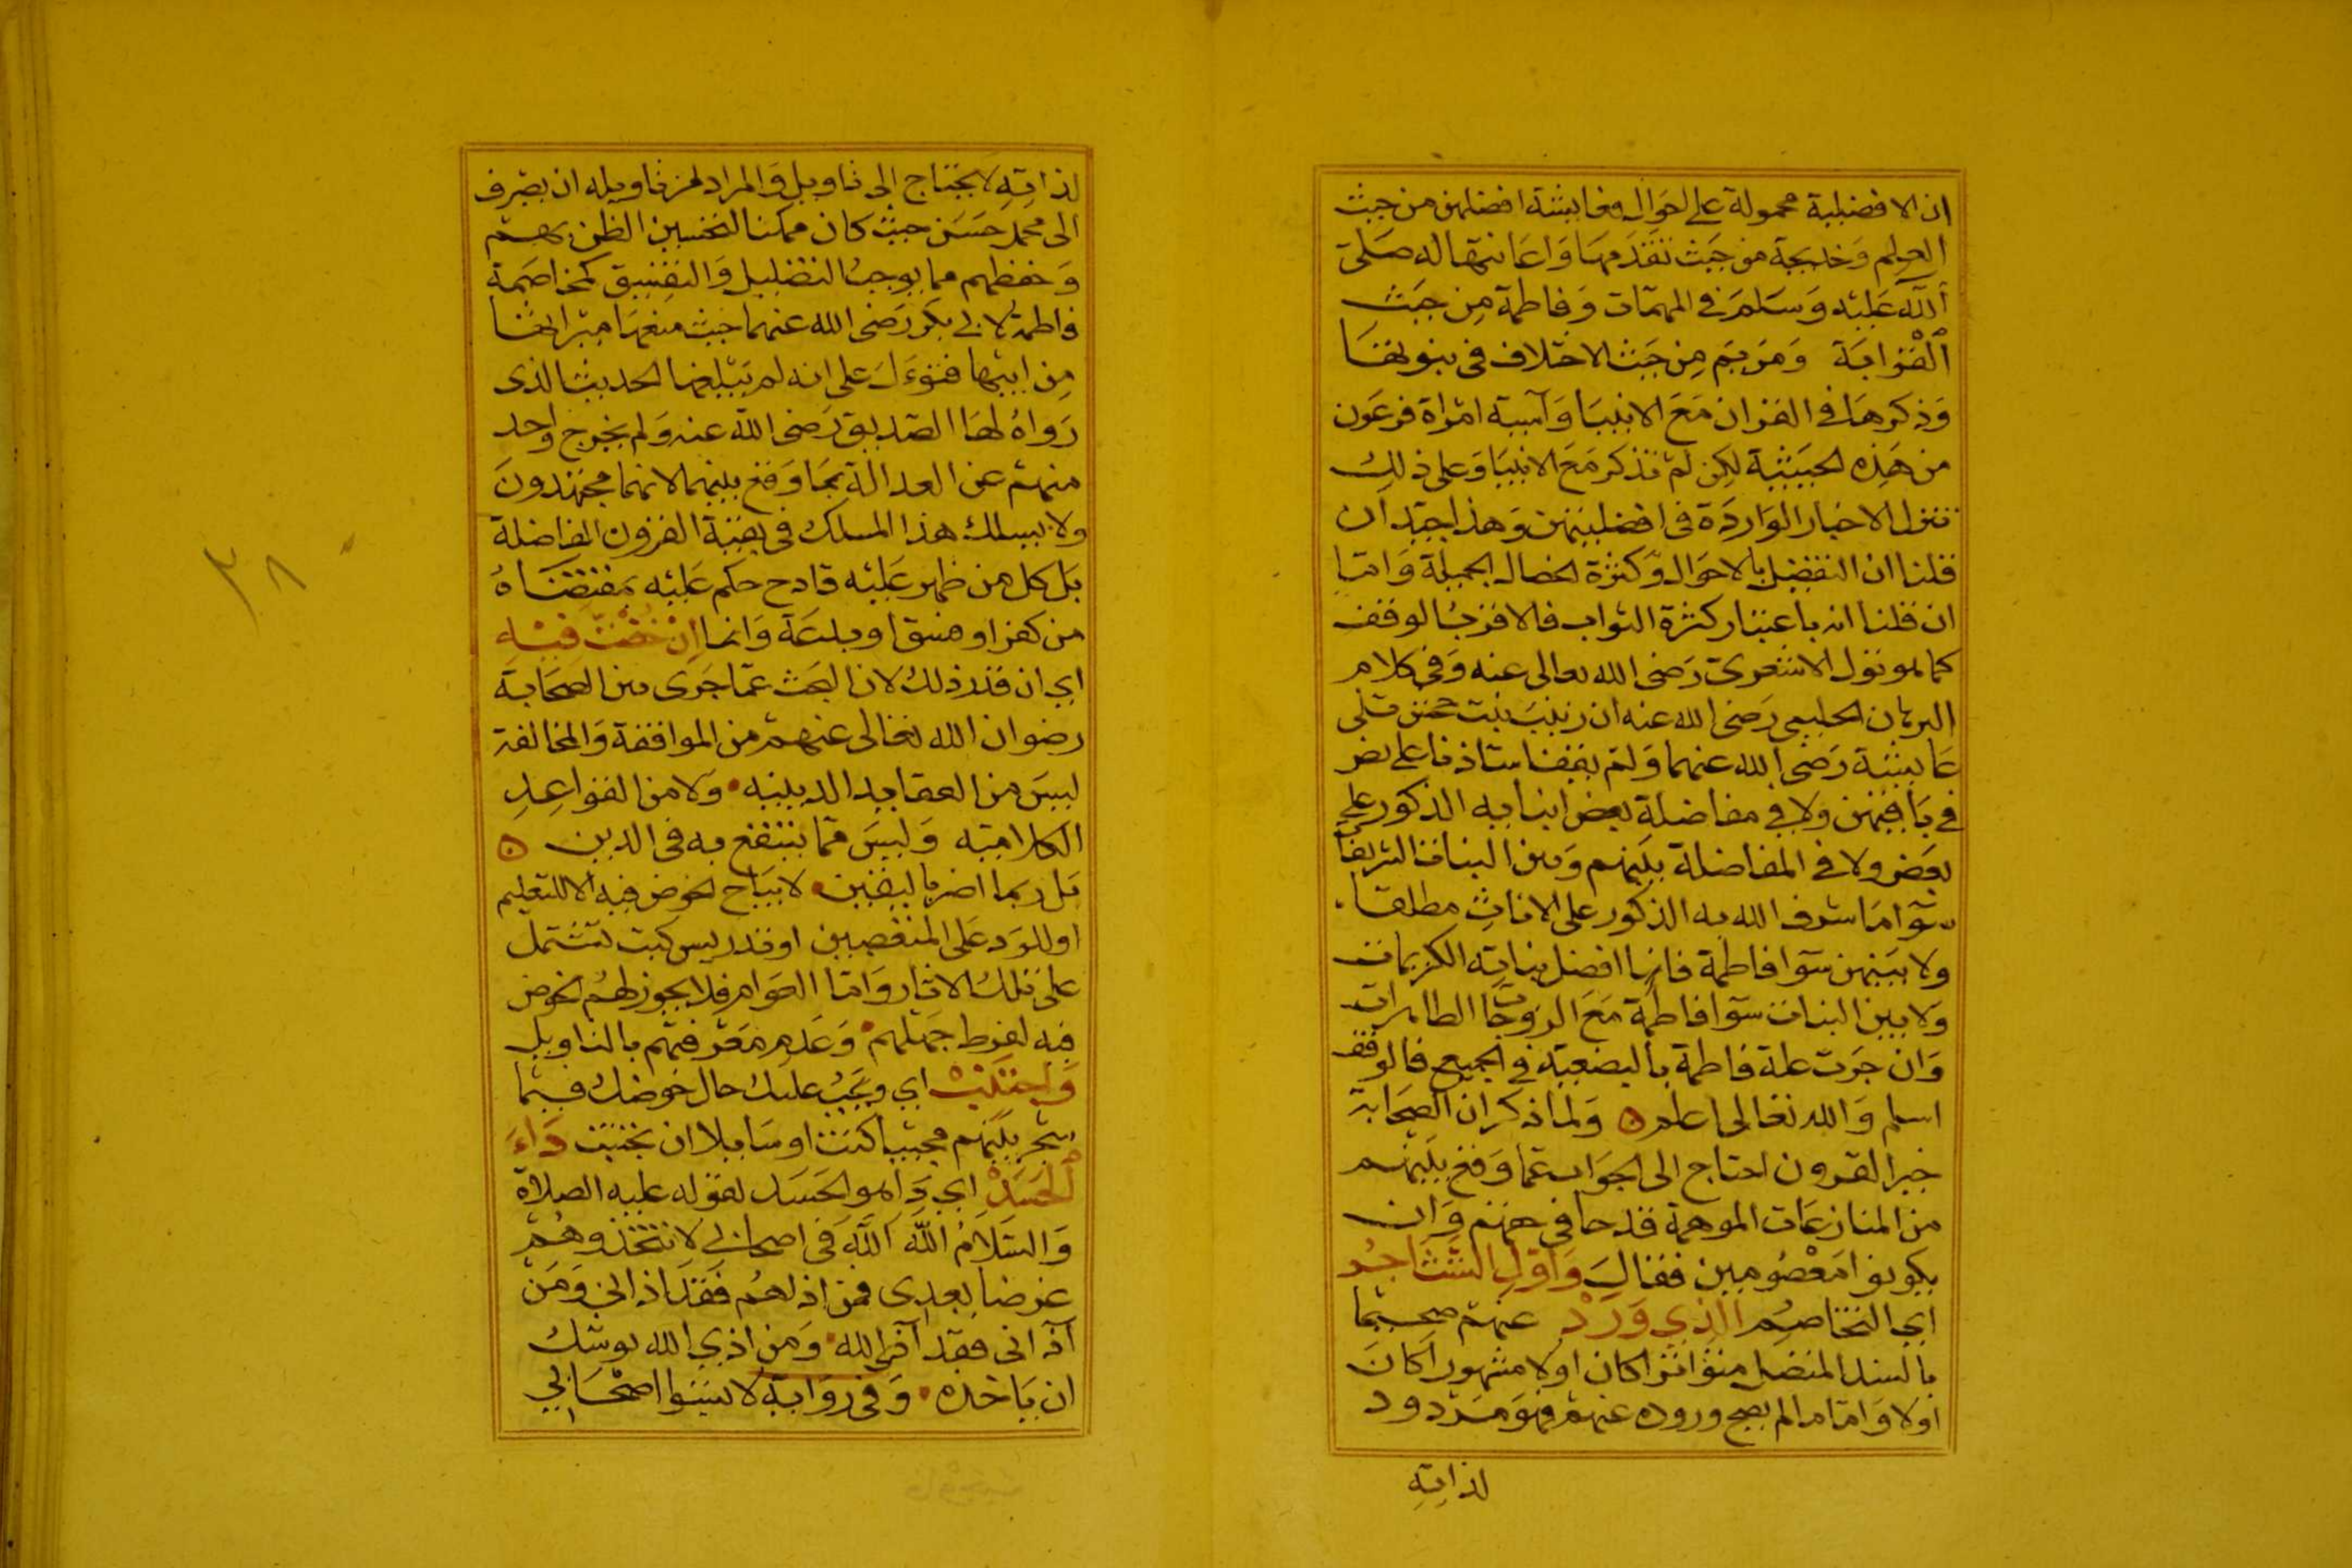 ان الافضلية محمولة على احوال فعايشة افضلهن من حيث
العلم وَخديجة من حَيث تقدمهَا وَاعَانتها له صَلى
اللهَ عَليْه وَسَلمَ في المهمّات وَفاطمة مِن حَيث
الْقرابَة وَمَريَم مِن حَيث الاختلاف في نبوتهَا
وَذكرهَا في القران مَعَ الانبيَا وَآسية امرَاة فرعَون
من هَذِه الحيثية لكِن لم تذكر مَعَ الانبيَا وَعلى ذلِكَ
تنزل الاخبار الوَاردَة في افضليتهن وَهذا جيّد ان
قلنا ان التفضيل بالاحوَال وَكثرة الخصال الجميلة وَامّا
ان قلنا انه باعتبار كثرة الثواب فالاقربُ الوقف
كما هو قول الاشعرى رَضى الله تعالى عنه وَفى كلام
البرهان الحلبى رَضى الله عنه ان زينبَ بنت جحش تلى
عَايشة رَضى الله عنهما وَلم يقف استاذنا على نص
في بَاقيهن ولا في مفاضلةِ بعض ابنايه الذكور على
بعَض ولا في المفاضلة بيَنهم وَبين البنات الشريفات
سوَا مَا شرف الله به الذكور على الاناثِ مطلقا
ولا بيَنهن سوَا فاطمة فانها افضل بناتِه الكريمات
وَلا بين البنات سوَا فاطمة مَعَ الزوجَات الطاهرات
وَان جَرت علة فاطمة بالبضعيّة في الجميع فالوقف
اسلم وَالله تعالى اعلم ۝ وَلما ذكر ان الصحَابة
خير القرون احتاج الى الجوَاب عمّا وَقع بيَنهم
من المنازعَات الموهمة قدحا في حقهم وَان لم
يكونوا مَعْصُومين فقالَ وَاوّلِ التشَاجُر
اى التخاصُم الذِي وَرَدْ عنهم صحيحًا
بالسند المتصل متوَاترا كان اوْلا مشهورا كان
اولا وَامّا ما لم يصح وروده عنهم فهوَ مَردود
لذاتِه
لذاتِه لَا يحتاج الى تاويل وَالمراد من تاويله ان يصرف
الى محمل حَسَن حيث كان ممكنا لتحسين الظن بهم
وَحفظهم مما يوجبُ التضليل وَالتفسيق كمخاصَمة
فاطمة لابى بكر رَضى الله عنهما حيث منعهَا ميراثهَا
مِن ابيها فتؤوّلَ على انه لم يَبلغها الحديث الذى
رَواهُ لهَا الصّديق رَضى الله عنه وَلم يخرج وَاحد
منهم عن العدالة بمَا وَقع بينهم لانهم مجتهدونَ
ولا يسلك هذا المسلك في بقية القرون الفاضلة
بَل كل من ظهر عَليْه قادح حكم عَليْه بمقتضَاهُ
من كفر او فسق او بدعَة وَانما اِنْ خُضْتَ فيْهِ
اى ان قدر ذلك لان البحث عمّا جَرى بين الصحَابة
رضوان الله تعالى عنهم من الموافقة وَالمخالفة
ليسَ من العقايد الدينيه وَلا من القوَاعِدِ
الكلاميّه وَليسَ ممّا ينتفع به في الدين ۝
بَل ربما اضر باليقين لا يبَاح الخوض فيه الا للتعليم
او للرَد عَلى المتعصبين او تدريس كتب تشتمل
على تلك الاثار وَامّا العوَام فلا يجوز لهُم الخوض
فيه لفرط جَهلهم وَعَدم مَعرفتهم بالتاويل
وَاجتَنِبْ اى ويَجبُ عليك حال خوضك فيمَا
شجر بيَنهم مجيبا كنت اوسَايلا ان تجتنب دَاءَ
الْحَسَدْ اى دَا هو الحَسَد لقوله عليه الصلاة
وَالسَلامُ اللهَ اللهَ في اصحابى لا تتخذوهُم
غرضا بعدى فمن اذاهُم فقَد اذانى وَمَن
آذانى فقد آذى الله وَمن اذى الله يوشك
ان يَاخذه وَفى رِوَاية لا تسبّوا اصْحَابى
٣٨